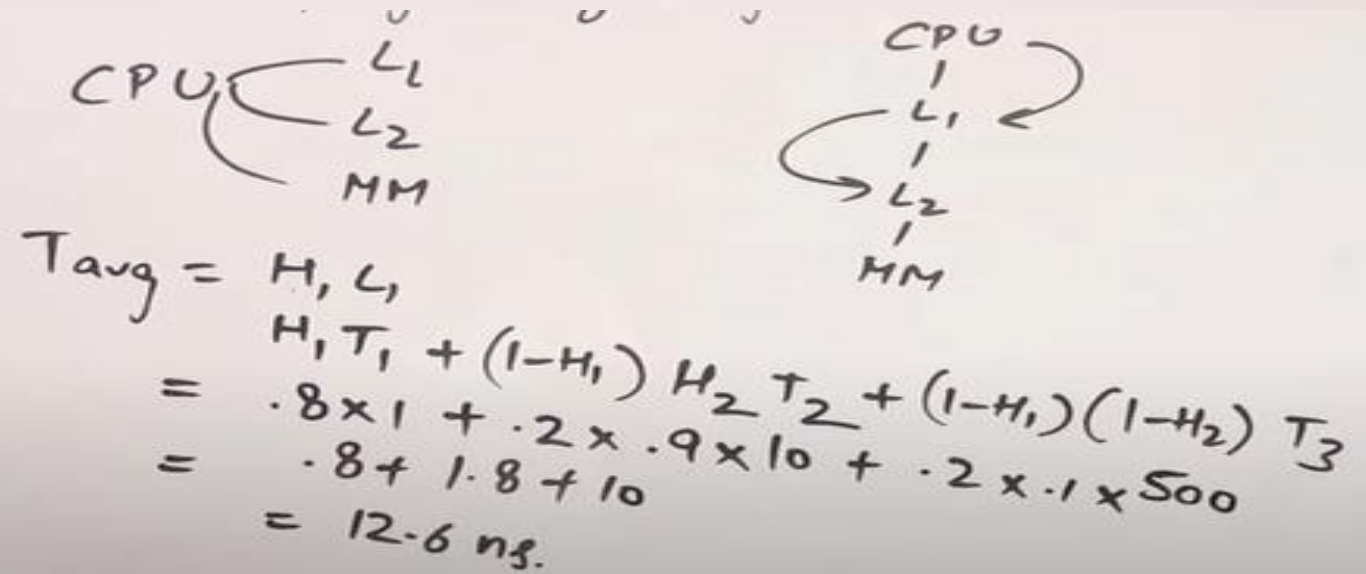 CPU L1
L2
MM
CPU
L1
L2
MM
Tavg = H1 L1
H1 T1 + (1-H1) H2 T2 + (1-H1)(1-H2) T3
= .8×1 + .2×.9×10 + .2×.1×500
= .8+1.8+10
= 12.6 ns.